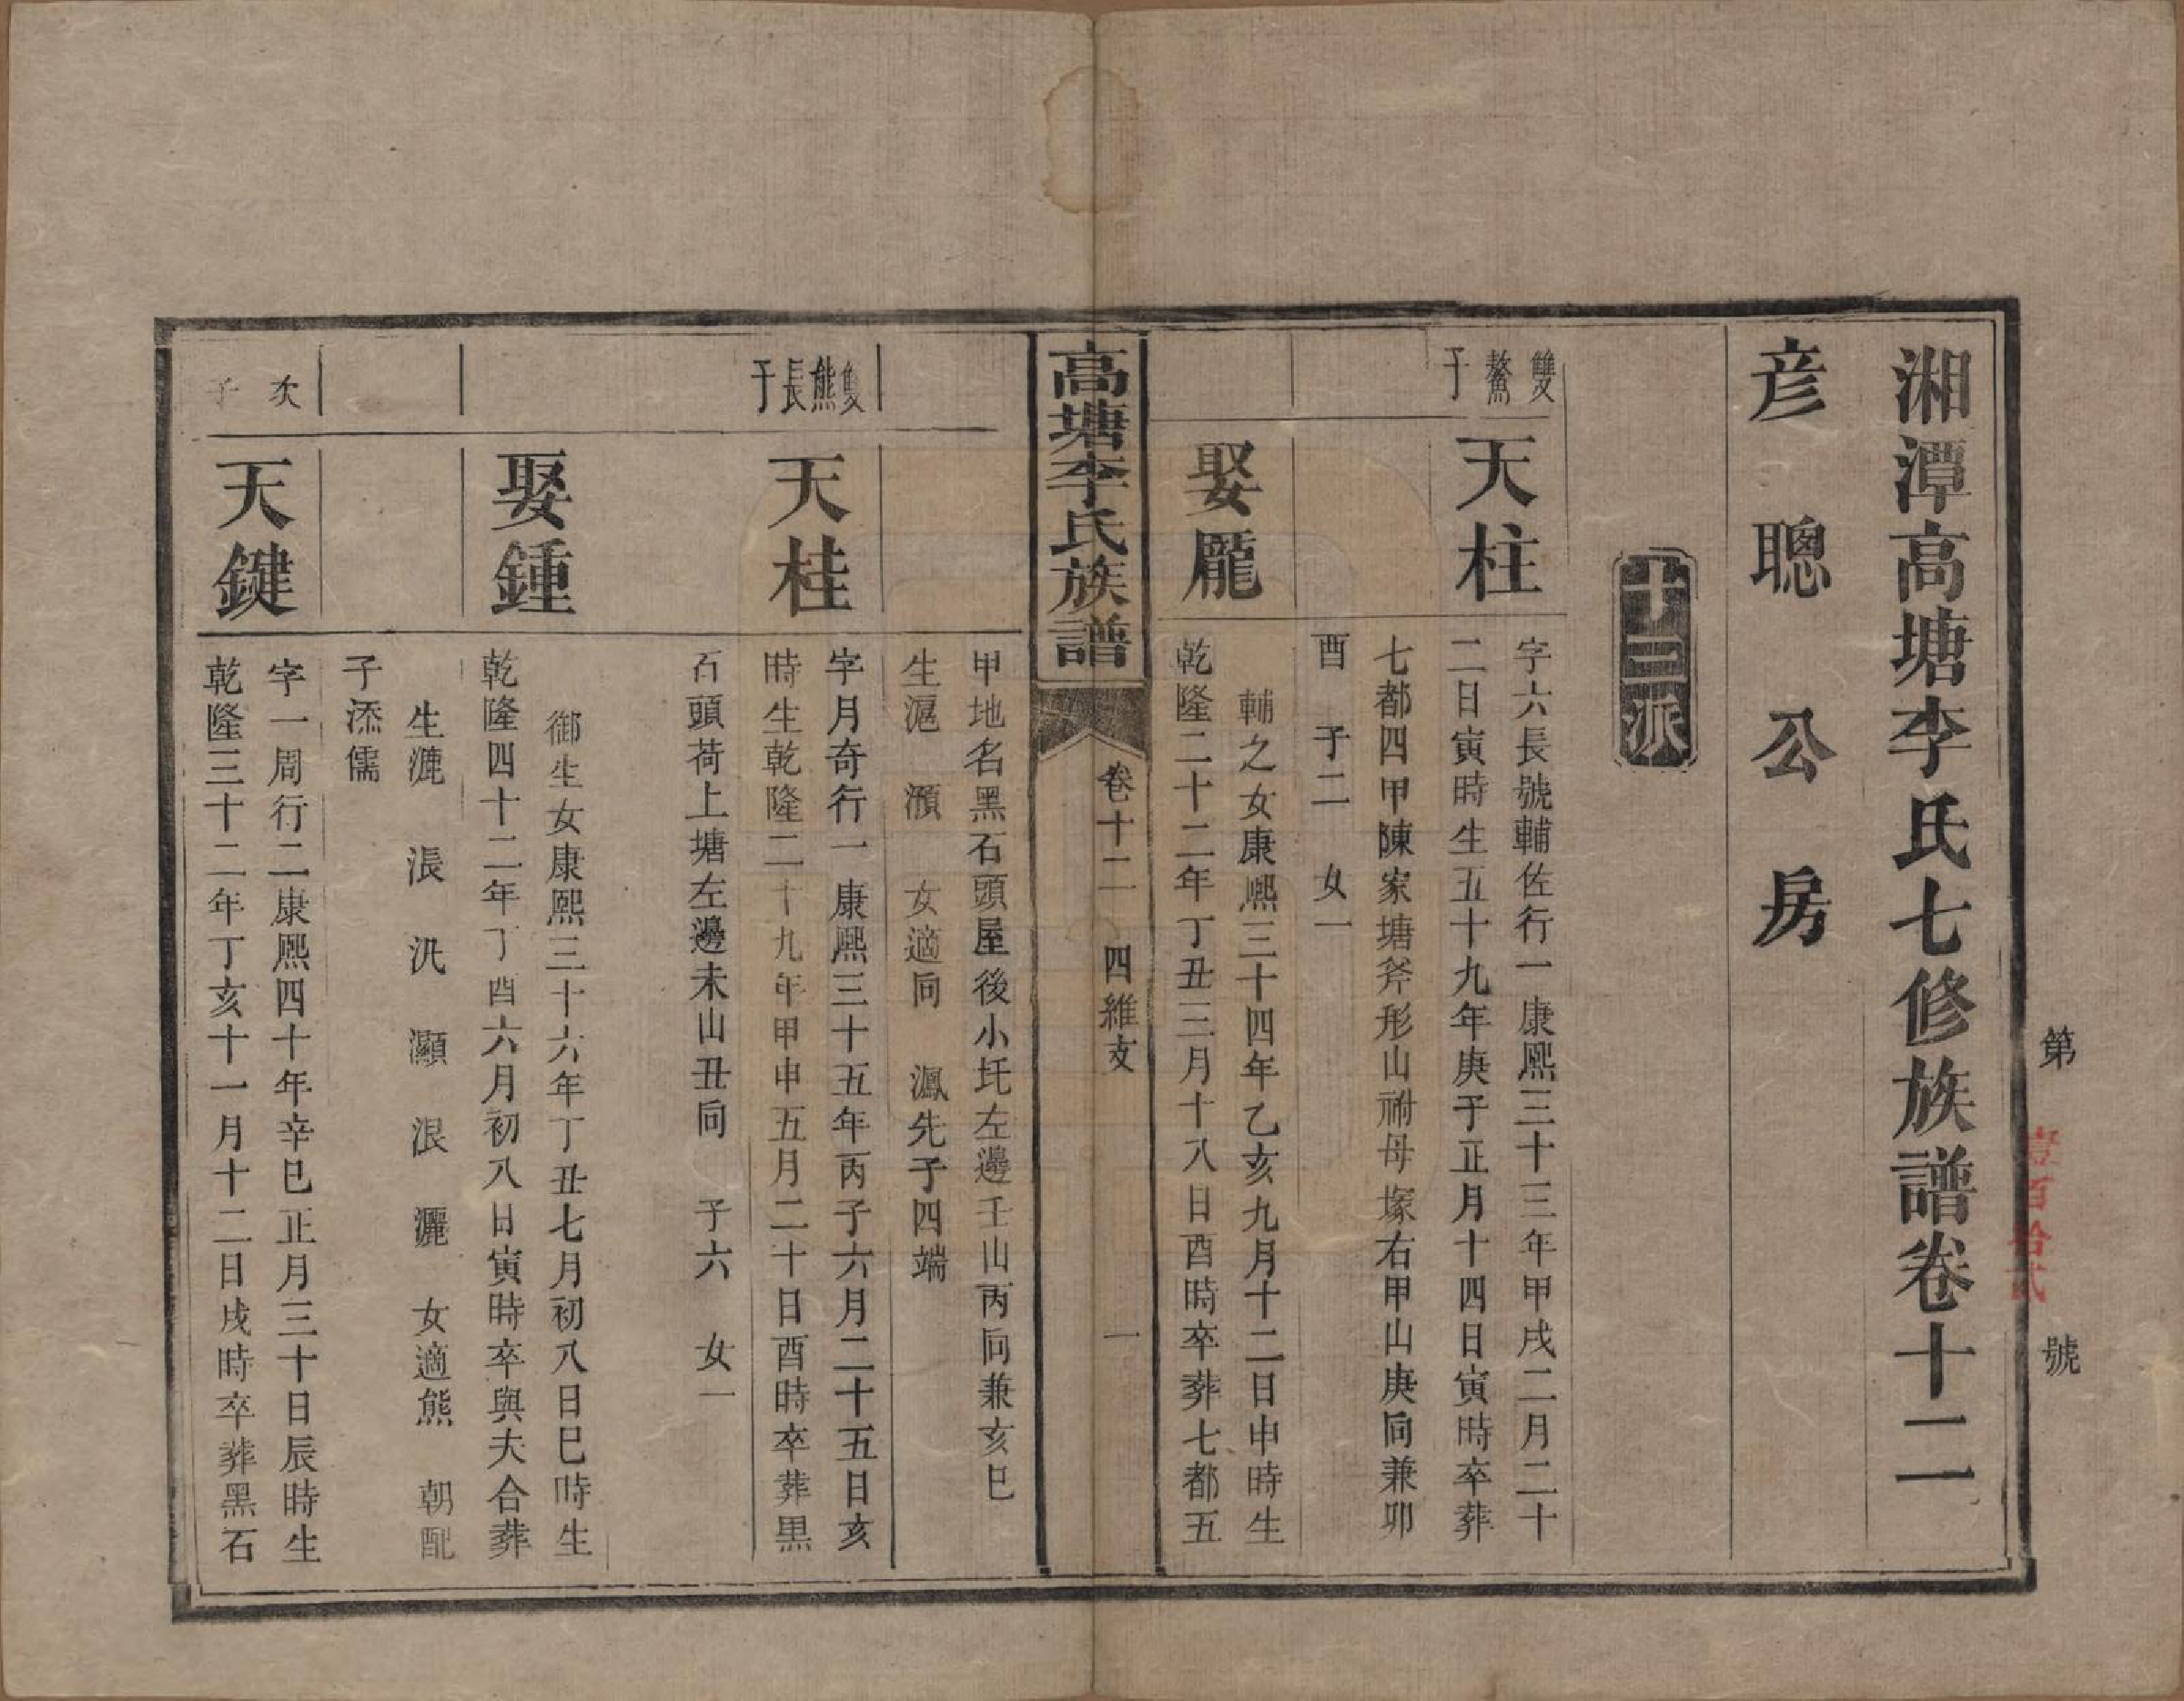 第 壹百拾貳 號
湘潭高塘李氏七修族譜卷十二
彦聰公房
十三派
雙鰲子
天柱
字六長號輔佐行一康熙三十三年甲戌二月二十
二日寅時生五十九年庚子正月十四日寅時卒葬
七都四甲陳家塘斧形山祔母塚右甲山庚向兼卯
酉 子二 女一
娶龎
輔之女康熙三十四年乙亥九月十二日申時生
乾隆二十二年丁丑三月十八日酉時卒葬七都五
高塘李氏族譜 卷十二 四維支 一
甲地名黑石頭屋後小圫左邊壬山丙向兼亥巳
生滬 澦 女適同 㵯先子四端
雙熊長子
天桂
字月奇行一康熙三十五年丙子六月二十五日亥
時生乾隆二十九年甲申五月二十日酉時卒葬黑
石頭荷上塘左邊未山丑向 子六 女一
娶鍾
御生女康熙三十六年丁丑七月初八日巳時生
乾隆四十二年丁酉六月初八日寅時卒與夫合葬
生漉 漲 汎 灝 泿 灑 女適熊 朝配
子添儒
次子
天鍵
字一周行二康熙四十年辛巳正月三十日辰時生
乾隆三十二年丁亥十一月十二日戌時卒葬黑石